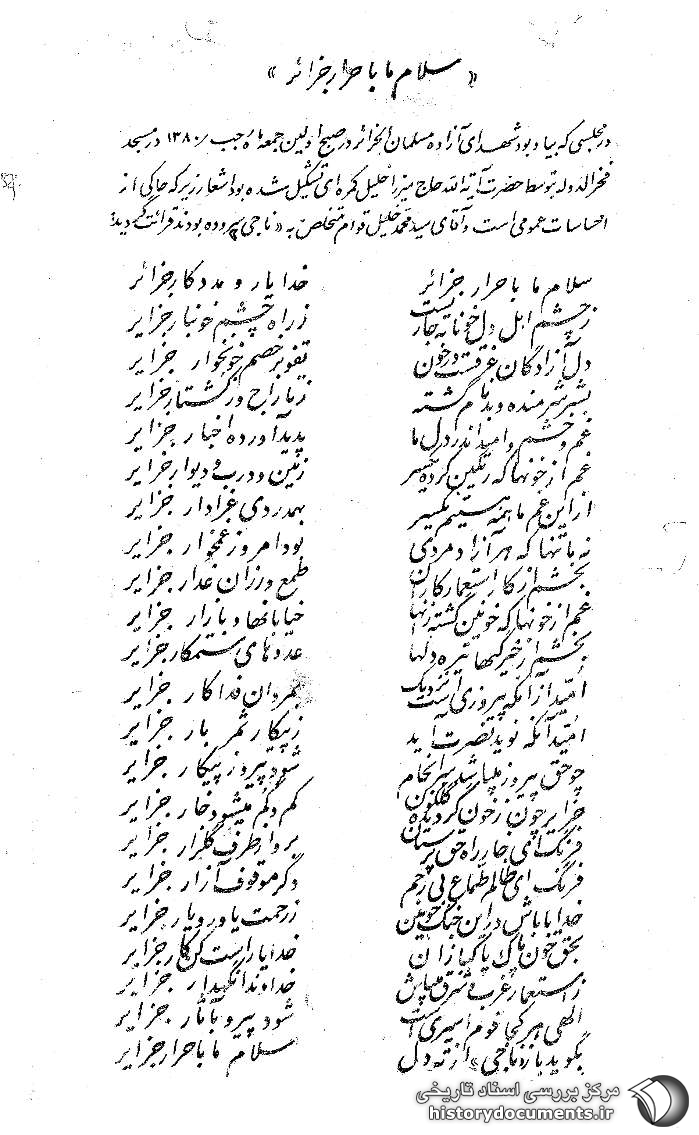 « سلام ما باحرار جزائر »
در مجلسی که بیاد بود شهدای آزاده مسلمان الجزائر در صبح اولین جمعه ماه رجب /۱۳۸۰ در مسجد
فخرالدوله توسط حضرت آیة الله حاج میرزا خلیل کمره‌ای تشکیل شده بود اشعار زیر که حاکی از
احساسات عمومی است و آقای سید محمد خلیل قوام متخلص به « ناجی سروده بودند قرائت گردید:
سلام ما باحرار جزائر خدا یار و مددکار جزائر
ز چشم اهل دل خونابه جاریست ز راه چشم خونبار جزایر
دل آزادگان غرقست در خون تفو بر خصم خونخوار جزایر
بشر شرمنده و بدنام گشته ز تاراج و ز کشتار جزایر
غم و خشم و امید اندر دل ما پدید آورده اخبار جزایر
غم از خونها که رنگین کرده یکسر زمین و درب و دیوار جزایر
از این غم ما همه هستیم یکسر بهمدردی عزادار جزایر
نه ما تنها که هر آزاد مردی بود امروز غمخوار جزایر
بخشم از کار استعمارکاران طمع ورزان غدار جزایر
غم از خونها که خونین گشته زنها خیابانها و بازار جزایر
بخشم از خیرگیها تیره دلها عدوهای ستمکار جزایر
امید از آنکه پیروزی است نزدیک بمردان فداکار جزایر
امید آنکه نوید نصرت آید ز پیکار ثمر بار جزایر
چو حق پیروز میباشد سرانجام شود پیروز پیکار جزایر
جزایر چون ز خون گردیده گلگون کم و کم میشود خار جزایر
فرنگ ای خار راه حق پرستان برو از طرف گلزار جزایر
فرنگ ای ظالم طماع بی رحم دگر موقوف آزار جزایر
خدایا باش در این جنگ خونین ز رحمت یاور و یار جزایر
بحق خون پاک پاکبازان خدایا راست کن کار جزایر
ز استعمار غرب و شرق میباش خداوندا نگهدار جزایر
الهی هر کجا قوم اسیری است شود پیرو بآثار جزایر
بگوید باز « ناجی » از ته دل سلام ما باحرار جزایر
مرکز بررسی اسناد تاریخی
historydocuments.ir